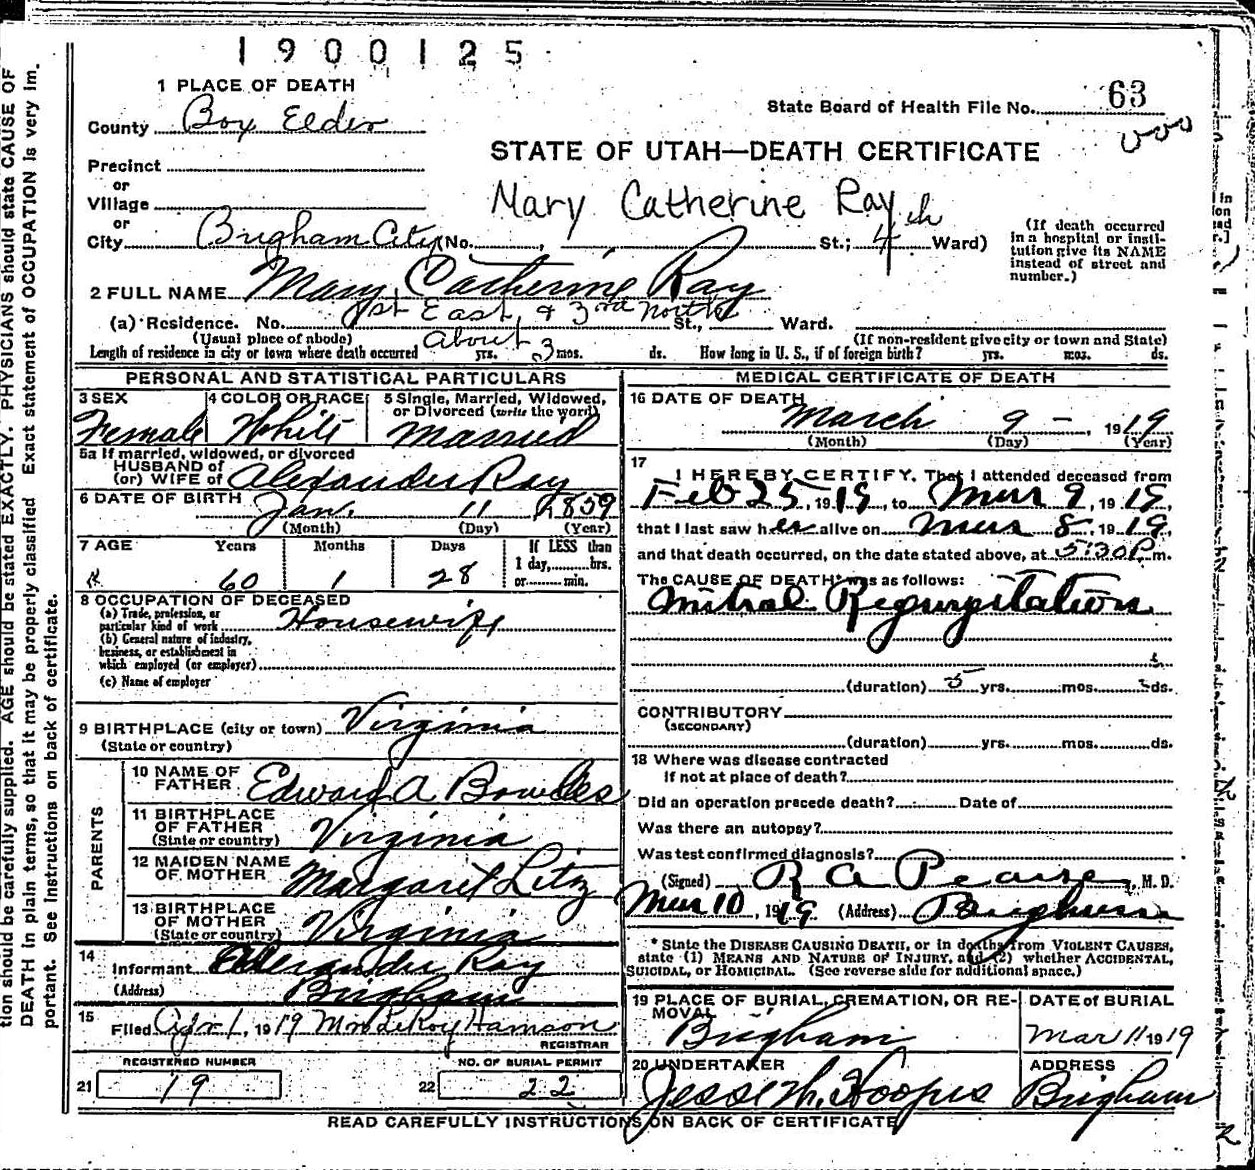 1900125
1 PLACE OF DEATH
State Board of Health File No. 63
County Box Elder
STATE OF UTAH—DEATH CERTIFICATE
Precinct
or
Village
Mary Catherine Ray
or
City Brigham City (No. , St.; 4th Ward)
(If death occurred in a hospital or insti-
tution give its NAME
instead of street and
number.)
2 FULL NAME Mary Catherine Ray
(a) Residence. No. 1st East & 3rd North St., Ward.
(Usual place of abode) (If non-resident give city or town and State)
Length of residence in city or town where death occurred About yrs. 3 mos. ds. How long in U. S., if of foreign birth? yrs. mos. ds.
PERSONAL AND STATISTICAL PARTICULARS
3 SEX Female
4 COLOR OR RACE White
5 Single, Married, Widowed,
or Divorced (write the word)
Married
5a If married, widowed, or divorced
HUSBAND of
(or) WIFE of Alexander Ray
6 DATE OF BIRTH Jan. 11, 1859
(Month) (Day) (Year)
7 AGE Years Months Days If LESS than
1 day, hrs.
60 1 28 or min.
8 OCCUPATION OF DECEASED
(a) Trade, profession, or
particular kind of work Housewife
(b) General nature of industry,
business, or establishment in
which employed (or employer)
(c) Name of employer
9 BIRTHPLACE (city or town) Virginia
(State or country)
PARENTS
10 NAME OF
FATHER Edward A Bowles
11 BIRTHPLACE
OF FATHER
(State or country) Virginia
12 MAIDEN NAME
OF MOTHER Margaret Litz
13 BIRTHPLACE
OF MOTHER
(State or country) Virginia
14
Informant Alexander Ray
(Address) Brigham
15
Filed Apr 1, 1919 Mrs LeRoy Hamson
REGISTRAR
REGISTERED NUMBER
21 19
NO. OF BURIAL PERMIT
22 22
MEDICAL CERTIFICATE OF DEATH
16 DATE OF DEATH
March 9 -, 1919
(Month) (Day) (Year)
17
I HEREBY CERTIFY, That I attended deceased from
Feb 25, 1919, to Mar 9, 1919,
that I last saw her alive on Mar 8, 1919,
and that death occurred, on the date stated above, at 5:30 P m.
The CAUSE OF DEATH* was as follows:
Mitral Regurgitation
(duration) 5 yrs. mos. ds.
CONTRIBUTORY
(SECONDARY)
(duration) yrs. mos. ds.
18 Where was disease contracted
if not at place of death?
Did an operation precede death? Date of
Was there an autopsy?
Was test confirmed diagnosis?
(Signed) R A Pearse, M. D.
Mar 10, 1919 (Address) Brigham
* State the DISEASE CAUSING DEATH, or in deaths from VIOLENT CAUSES,
state (1) MEANS AND NATURE OF INJURY, and (2) whether ACCIDENTAL,
SUICIDAL, or HOMICIDAL. (See reverse side for additional space.)
19 PLACE OF BURIAL, CREMATION, OR RE-
MOVAL
Brigham
DATE of BURIAL
Mar 11 1919
20 UNDERTAKER
Jesse M. Hoopes
ADDRESS
Brigham
READ CAREFULLY INSTRUCTIONS ON BACK OF CERTIFICATE
tion should be carefully supplied. AGE should be stated EXACTLY. PHYSICIANS should state CAUSE OF
DEATH in plain terms, so that it may be properly classified Exact statement of OCCUPATION is very im.
portant. See instructions on back of certificate.